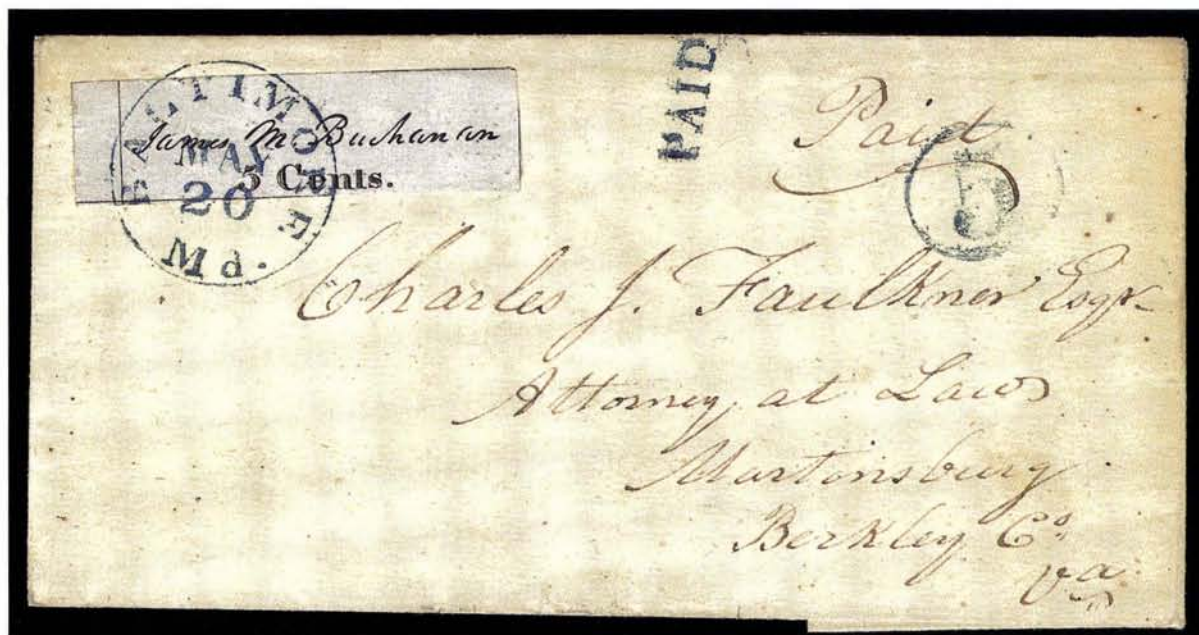 BALTIMORE Md.
MAY
20
James M. Buchanan
5 Cents.
PAID
Paid
5
Charles J. Faulkner Esqr
Attorney at Law
Martinsburg
Berkley Co
Va